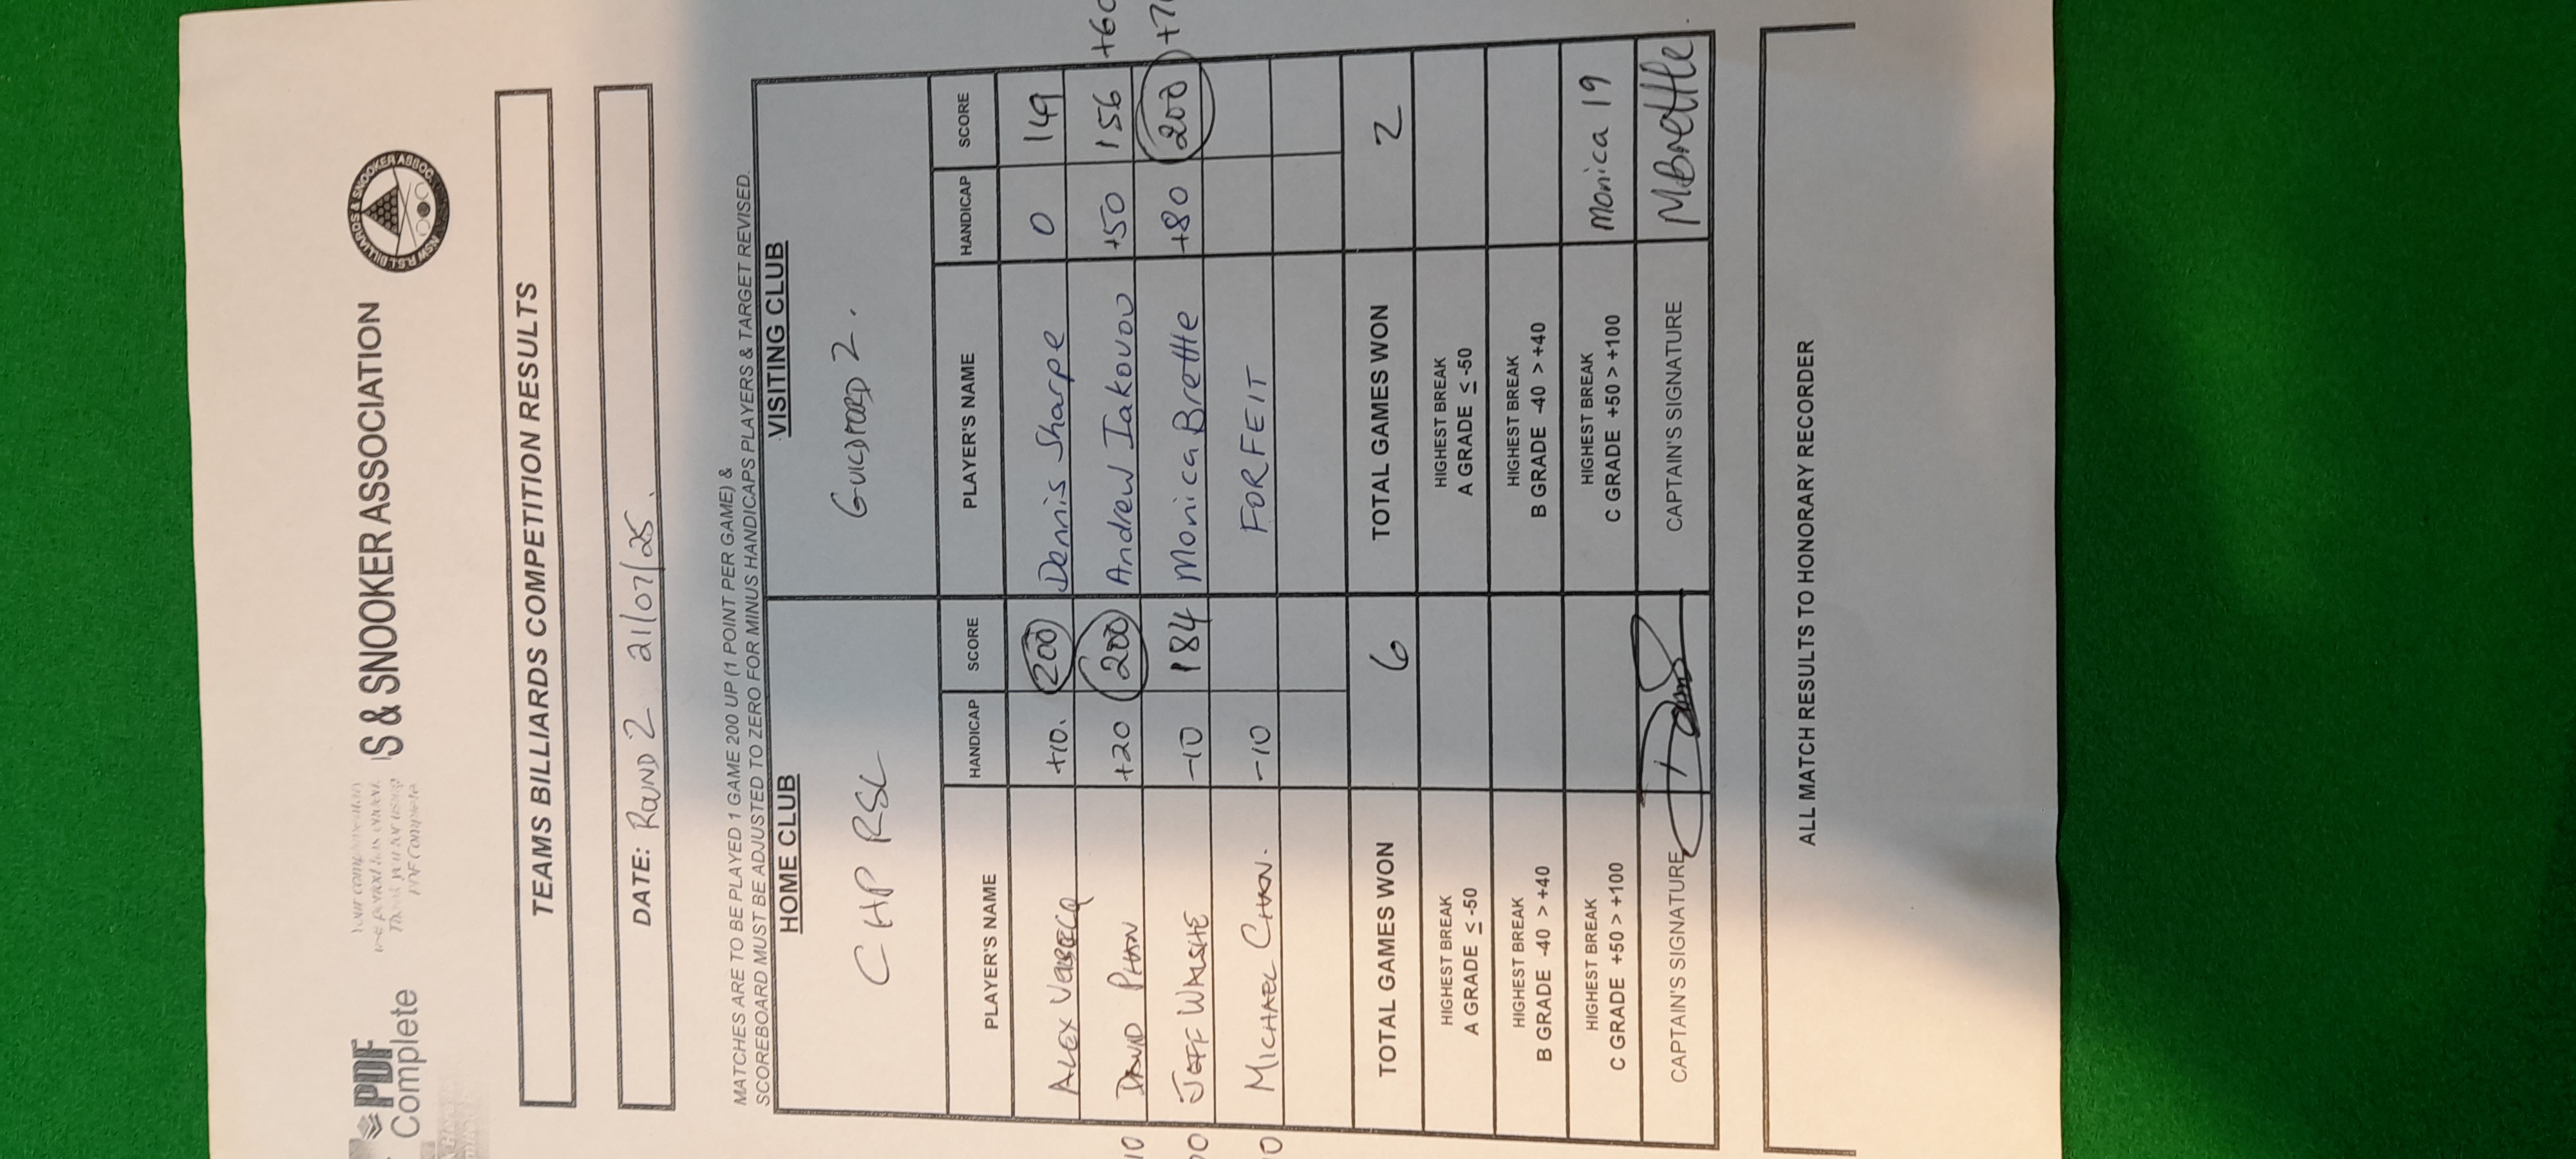 PDF
Complete
Your complimentary
use period has ended.
Thank you for using
PDF Complete
S & SNOOKER ASSOCIATION
NSW R.S.L. BILLIARDS & SNOOKER ASSOC.
TEAMS BILLIARDS COMPETITION RESULTS
DATE: ROUND 2 21/07/25.
MATCHES ARE TO BE PLAYED 1 GAME 200 UP (1 POINT PER GAME) &
SCOREBOARD MUST BE ADJUSTED TO ZERO FOR MINUS HANDICAPS PLAYERS & TARGET REVISED.
HOME CLUB VISITING CLUB
CHP RSL GUILDFORD 2.
PLAYER'S NAME HANDICAP SCORE PLAYER'S NAME HANDICAP SCORE
ALEX +10. 200 Dennis Sharpe 0 149
10 DAVID PHAN +20 200 Andrew Iakovou +50 156 +60
00 JEFF -10 184 Monica Brettle +80 200 +70
0 MICHAEL CHAN. -10 FORFEIT
TOTAL GAMES WON 6 TOTAL GAMES WON 2
HIGHEST BREAK
A GRADE ≤ -50
HIGHEST BREAK
A GRADE ≤ -50
HIGHEST BREAK
B GRADE -40 > +40
HIGHEST BREAK
B GRADE -40 > +40
HIGHEST BREAK
C GRADE +50 > +100
HIGHEST BREAK
C GRADE +50 > +100
Monica 19
CAPTAIN'S SIGNATURE CAPTAIN'S SIGNATURE MBrettle.
ALL MATCH RESULTS TO HONORARY RECORDER